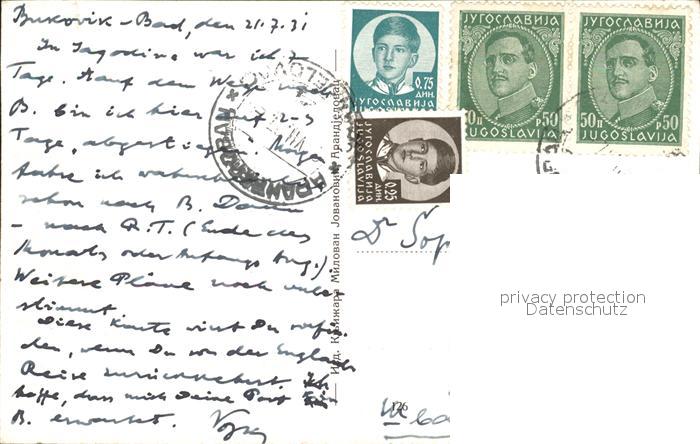 Bukovik-Bad, den 21.7.31
In Jagodina war ich 2
Tage. Auf dem Wege nach
B. bin ich hier auf 2-3
Tage, abgestiegen. Morgen
fahre ich
schon nach B. Dann
- nach R.T. (Ende des
Monats oder Anfangs Aug.).
Weitere Pläne noch unbe-
stimmt.
Diese Karte wirst Du vorfin-
den, wenn Du von der England
Reise zurückkehrst. Ich
hoffe, dass mich Deine Post in
B. erwartet.
ЈУГОСЛАВИЈА
0.75
ДИН.
JUGOSLAVIJA
ЈУГОСЛАВИЈА
50П
P50
JUGOSLAVIJA
ЈУГОСЛАВИЈА
50П
P50
JUGOSLAVIJA
ЈУГОСЛАВИЈА
0.25
ДИН.
JUGOSLAVIJA
Изд. Књижара Милован Јовановић, Аранђеловац
Dr Šop
privacy protection
Datenschutz
126